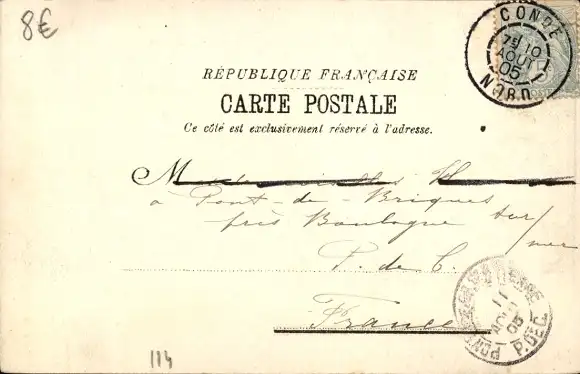 8€
CONDÉ
7E 10
AOUT
05
NORD
RÉPUBLIQUE FRANÇAISE
CARTE POSTALE
Ce côté est exclusivement réservé à l'adresse.
à Pont-de-Briques
près Boulogne sur/mer
P. de C.
France
11
AOUT
05
P. DE C.
114